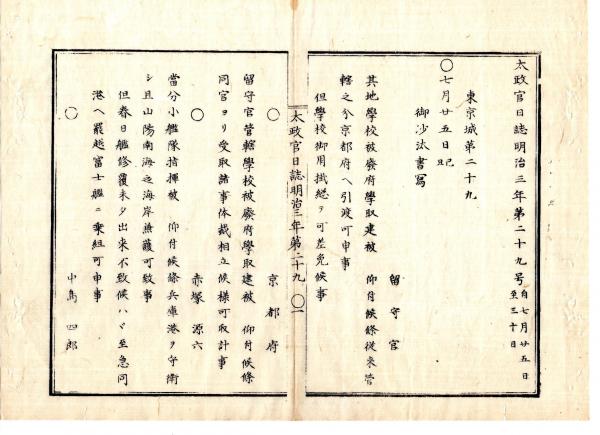 太政官日誌明治三年第二十九号 自七月廿五日 至三十日
東京城第二十九
○七月廿五日 己丑
御沙汰書寫
留守官
其地學校被廢府學取建被 仰付候條從來管
轄之分京都府へ引渡可申事
但學校御用掛總テ可差免候事
太政官日誌明治三年第二十九 ○一
○ 京都府
留守官管轄學校被廢府學取建被 仰付候條
同官ヨリ受取諸事体裁相立候樣可取計事
○ 赤塚源六
當分小艦隊指揮被 仰付候條兵庫港ヲ守衛
シ且山陽南海之海岸兼護可致事
但春日艦修覆未タ出來不致候ハヾ至急同
港へ罷越富士艦ニ乘組可申事
○ 中島四郎